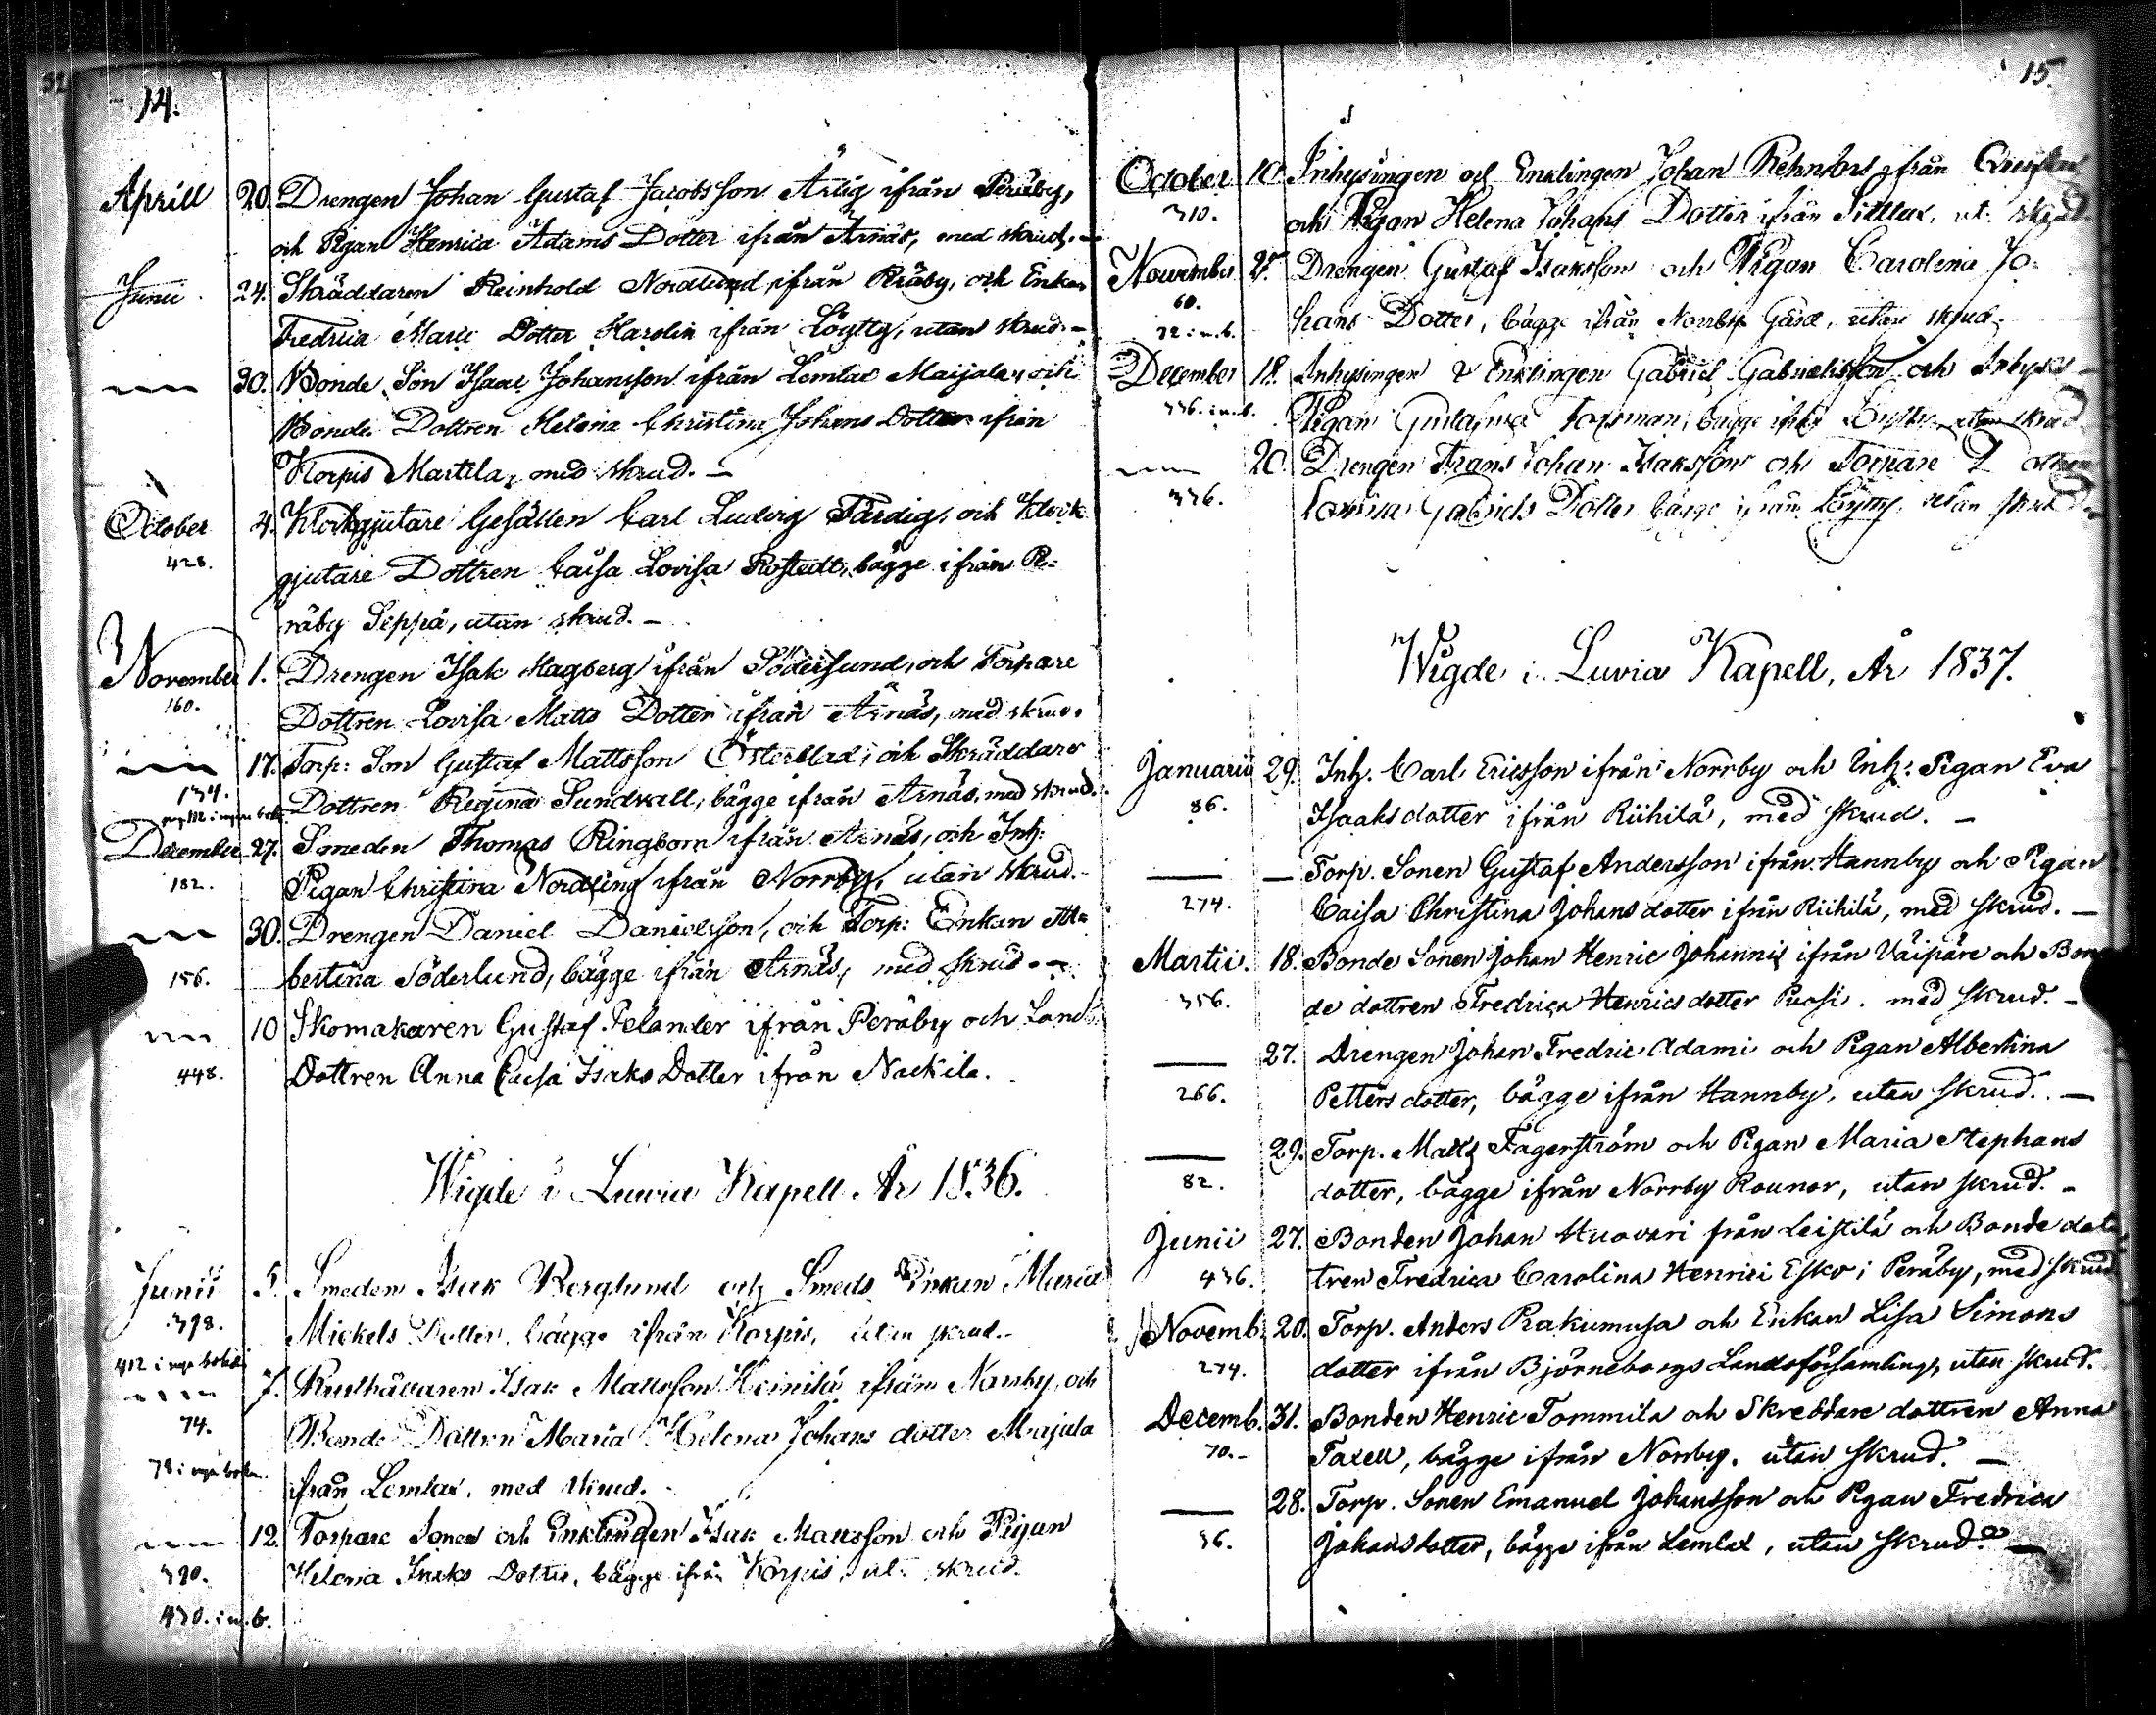 14.
Aprill 20. Drengen Johan Gustaf Jacobsson Ärlig ifrån Peräby,
och Pigan Henrica Adams Dotter ifrån Arnäs, med skrud. –
Junii 24. Skräddaren Reinhold Nordlund ifrån Peräby, och Enkan
Fredrica Marie Dotter Harolin ifrån Löytty, utan skrud. –
30. Bonde Son Isaac Johansson ifrån Lemlax Marjala, och
Bonde Dottren Helena Christina Johans Dotter ifrån
Korpis Martila, med skrud. –
October 4. Klockgjutare Gesällen Carl Ludvig Färdig, och Klock
428.
gjutare Dottren Caisa Lovisa Rostedt, bägge ifrån Pe-
räby Seppä, utan skrud. –
November 1. Drengen Isak Hagberg ifrån Södersund, och Torpare
160.
Dottren Lovisa Matts Dotter ifrån Arnäs, med skrud.
17. Torp: Son Gustaf Mattsson Österblad, och Skräddare
134.
Dottren Regina Sundvall, bägge ifrån Arnäs, med skrud.
December 27. Smeden Thomas Ringbom ifrån Arnäs, och Inh:
182.
Pigan Christina Nordling ifrån Norrby, utan skrud. –
30. Drengen Daniel Danielsson, och Torp: Enkan Al-
156.
bertina Söderlund, bägge ifrån Arnäs, med skrud. –
10 Skomakaren Gustaf Pelander ifrån Peräby och Land
448.
Dottren Anna Caisa Isaks Dotter ifrån Nackila.
Wigde i Luvia Kapell År 1836.
Junii 5. Smeden Isak Berglund och Smeds Enkan Maria
398.
Mickels Dotter, bägge ifrån Korpis, utan skrud. –
412 i nya boken
7. Rusthållaren Isak Mattsson Heinilä ifrån Norrby, och
74.
Bonde Dottren Maria Helena Johans dotter Majala
78 i nya boken.
ifrån Lemlax, med skrud.
12. Torpare Sonen och Enklingen Isak Mattsson och Pigan
390.
Helena Isaks Dotter, bägge ifrån Korpis, ut: skrud.
430. i n. b.
15.
October 10. Inhysingen och Enklingen Johan Rehnfors ifrån
310.
och Pigan Helena Johans Dotter ifrån Sittlax, ut: skrud.
November 27. Drengen Gustaf Isaksson och Pigan Carolina Jo-
60.
72 i n. b.
hans Dotter, bägge ifrån Norrby Gård, utan skrud.
December 18. Inhysingen & Enklingen Gabriel Gabrielsson och Inhyses
336. i n. b.
Pigan Gustafva Forsman, bägge ifrån Löytty, utan skrud.
20. Drengen Frans Johan Isaksson och Torpare Dottren
336.
Lovisa Gabriels Dotter bägge ifrån Löytty, utan skrud.
Wigde i Luvia Kapell, År 1837.
Januarii 29. Inh. Carl Ericsson ifrån Norrby och Inh: Pigan Eva
86.
Isaaks dotter ifrån Riihilä, med skrud. –
– Torp. Sonen Gustaf Andersson ifrån Hannby och Pigan
274.
Caisa Christina Johans dotter ifrån Riihilä, med skrud. –
Martii. 18. Bonde Sonen Johan Henric Johannis ifrån Väipäre och Bon
356.
de dottren Fredrica Henrics dotter Puosi. med skrud. –
27. Drengen Johan Fredric Adami och Pigan Albertina
266.
Petters dotter, bägge ifrån Hannby, utan skrud. –
29. Torp. Matts Fagerström och Pigan Maria Stephans
82.
dotter, bägge ifrån Norrby Rounor, utan skrud. –
Junii 27. Bonden Johan Huovari från Leistilä och Bonde dot-
436.
tren Fredrica Carolina Henrici Esko i Peräby, med skrud
Novemb. 20. Torp. Anders Rakumusa och Enkan Lisa Simons
274.
dotter ifrån Björneborgs Landsförsamling, utan skrud.
Decemb. 31. Bonden Henric Tommila och Skreddare dottren Anna
70. –
Taxell, bägge ifrån Norrby, utan skrud. –
28. Torp. Sonen Emanuel Johansson och Pigan Fredrica
36.
Johansdotter, bägge ifrån Lemlax, utan skrud. –